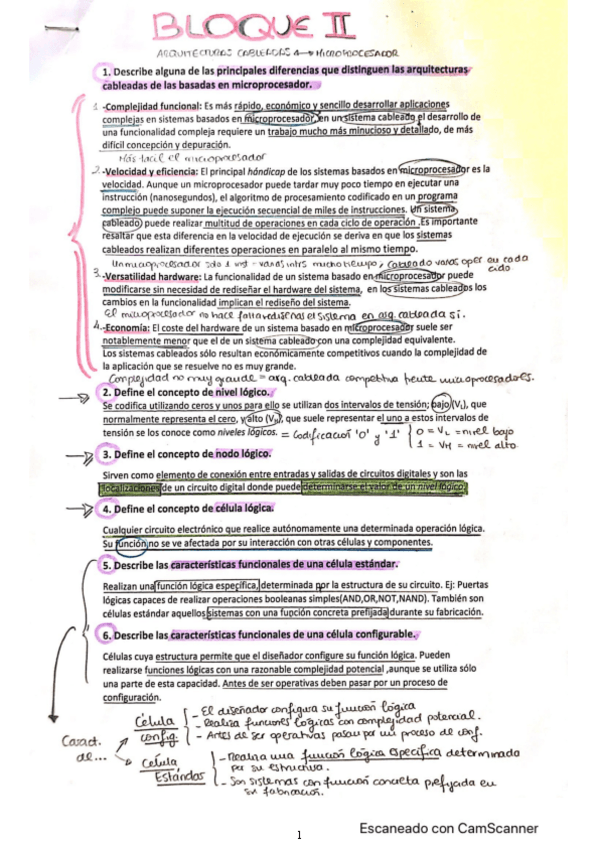 BLOQUE II
ARQUITECTURAS CABLEADAS ↔ MICROPROCESADOR
1. Describe alguna de las principales diferencias que distinguen las arquitecturas
cableadas de las basadas en microprocesador.
1 -Complejidad funcional: Es más rápido, económico y sencillo desarrollar aplicaciones
complejas en sistemas basados en microprocesador, en un sistema cableado el desarrollo de
una funcionalidad compleja requiere un trabajo mucho más minucioso y detallado, de más
difícil concepción y depuración.
Más facil el microprocesador
2 -Velocidad y eficiencia: El principal hándicap de los sistemas basados en microprocesador es la
velocidad. Aunque un microprocesador puede tardar muy poco tiempo en ejecutar una
instrucción (nanosegundos), el algoritmo de procesamiento codificado en un programa
complejo puede suponer la ejecución secuencial de miles de instrucciones. Un sistema
cableado puede realizar multitud de operaciones en cada ciclo de operación .Es importante
resaltar que esta diferencia en la velocidad de ejecución se deriva en que los sistemas
cableados realizan diferentes operaciones en paralelo al mismo tiempo.
Un microprocesador solo 1 - varias intrs mucho tiempo, cableado varas oper en cada
ciclo
3 -Versatilidad hardware: La funcionalidad de un sistema basado en microprocesador puede
modificarse sin necesidad de rediseñar el hardware del sistema, en los sistemas cableados los
cambios en la funcionalidad implican el rediseño del sistema.
El microprocesador no hace falta rediseñas el sistema en arq. cableada sí.
4 -Economía: El coste del hardware de un sistema basado en microprocesador suele ser
notablemente menor que el de un sistema cableado con una complejidad equivalente.
Los sistemas cableados sólo resultan económicamente competitivos cuando la complejidad de
la aplicación que se resuelve no es muy grande.
Complejidad no muy grande = arq. cableada competitiva frente microprocesadores.
2. Define el concepto de nivel lógico.
Se codifica utilizando ceros y unos para ello se utilizan dos intervalos de tensión; bajo (VL), que
normalmente representa el cero, y alto (VH), que suele representar el uno a estos intervalos de
tensión se los conoce como niveles lógicos. = Codificación '0' y '1' { 0 = VL = nivel bajo
1 = VH = nivel alto
3. Define el concepto de nodo lógico.
Sirven como elemento de conexión entre entradas y salidas de circuitos digitales y son las
localizaciones de un circuito digital donde puede determinarse el valor de un nivel lógico.
4. Define el concepto de célula lógica.
Cualquier circuito electrónico que realice autónomamente una determinada operación lógica.
Su función no se ve afectada por su interacción con otras células y componentes.
5. Describe las características funcionales de una célula estándar.
Realizan una función lógica específica, determinada por la estructura de su circuito. Ej: Puertas
lógicas capaces de realizar operaciones booleanas simples(AND,OR,NOT,NAND). También son
células estándar aquellos sistemas con una función concreta prefijada durante su fabricación.
6. Describe las características funcionales de una célula configurable.
Células cuya estructura permite que el diseñador configure su función lógica. Pueden
realizarse funciones lógicas con una razonable complejidad potencial ,aunque se utiliza sólo
una parte de esta capacidad. Antes de ser operativas deben pasar por un proceso de
configuración.
Caract. de...
Célula config.
- El diseñador configura su función lógica
- Realiza funciones lógicas con complejidad potencial.
- Antes de ser operativas pasan por un proceso de conf.
Célula Estándar
- Realiza una función lógica específica determinada
por su estructura.
- Son sistemas con función concreta prefijada en
su fabricación.
1
Escaneado con CamScanner